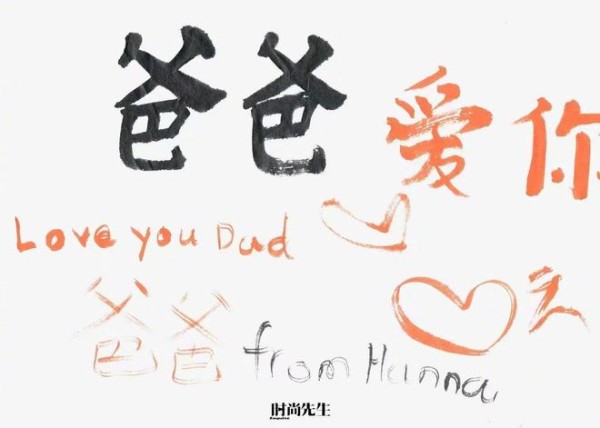 爸爸 爱你
Love you Dad
爸爸 from Hanna
时尚先生